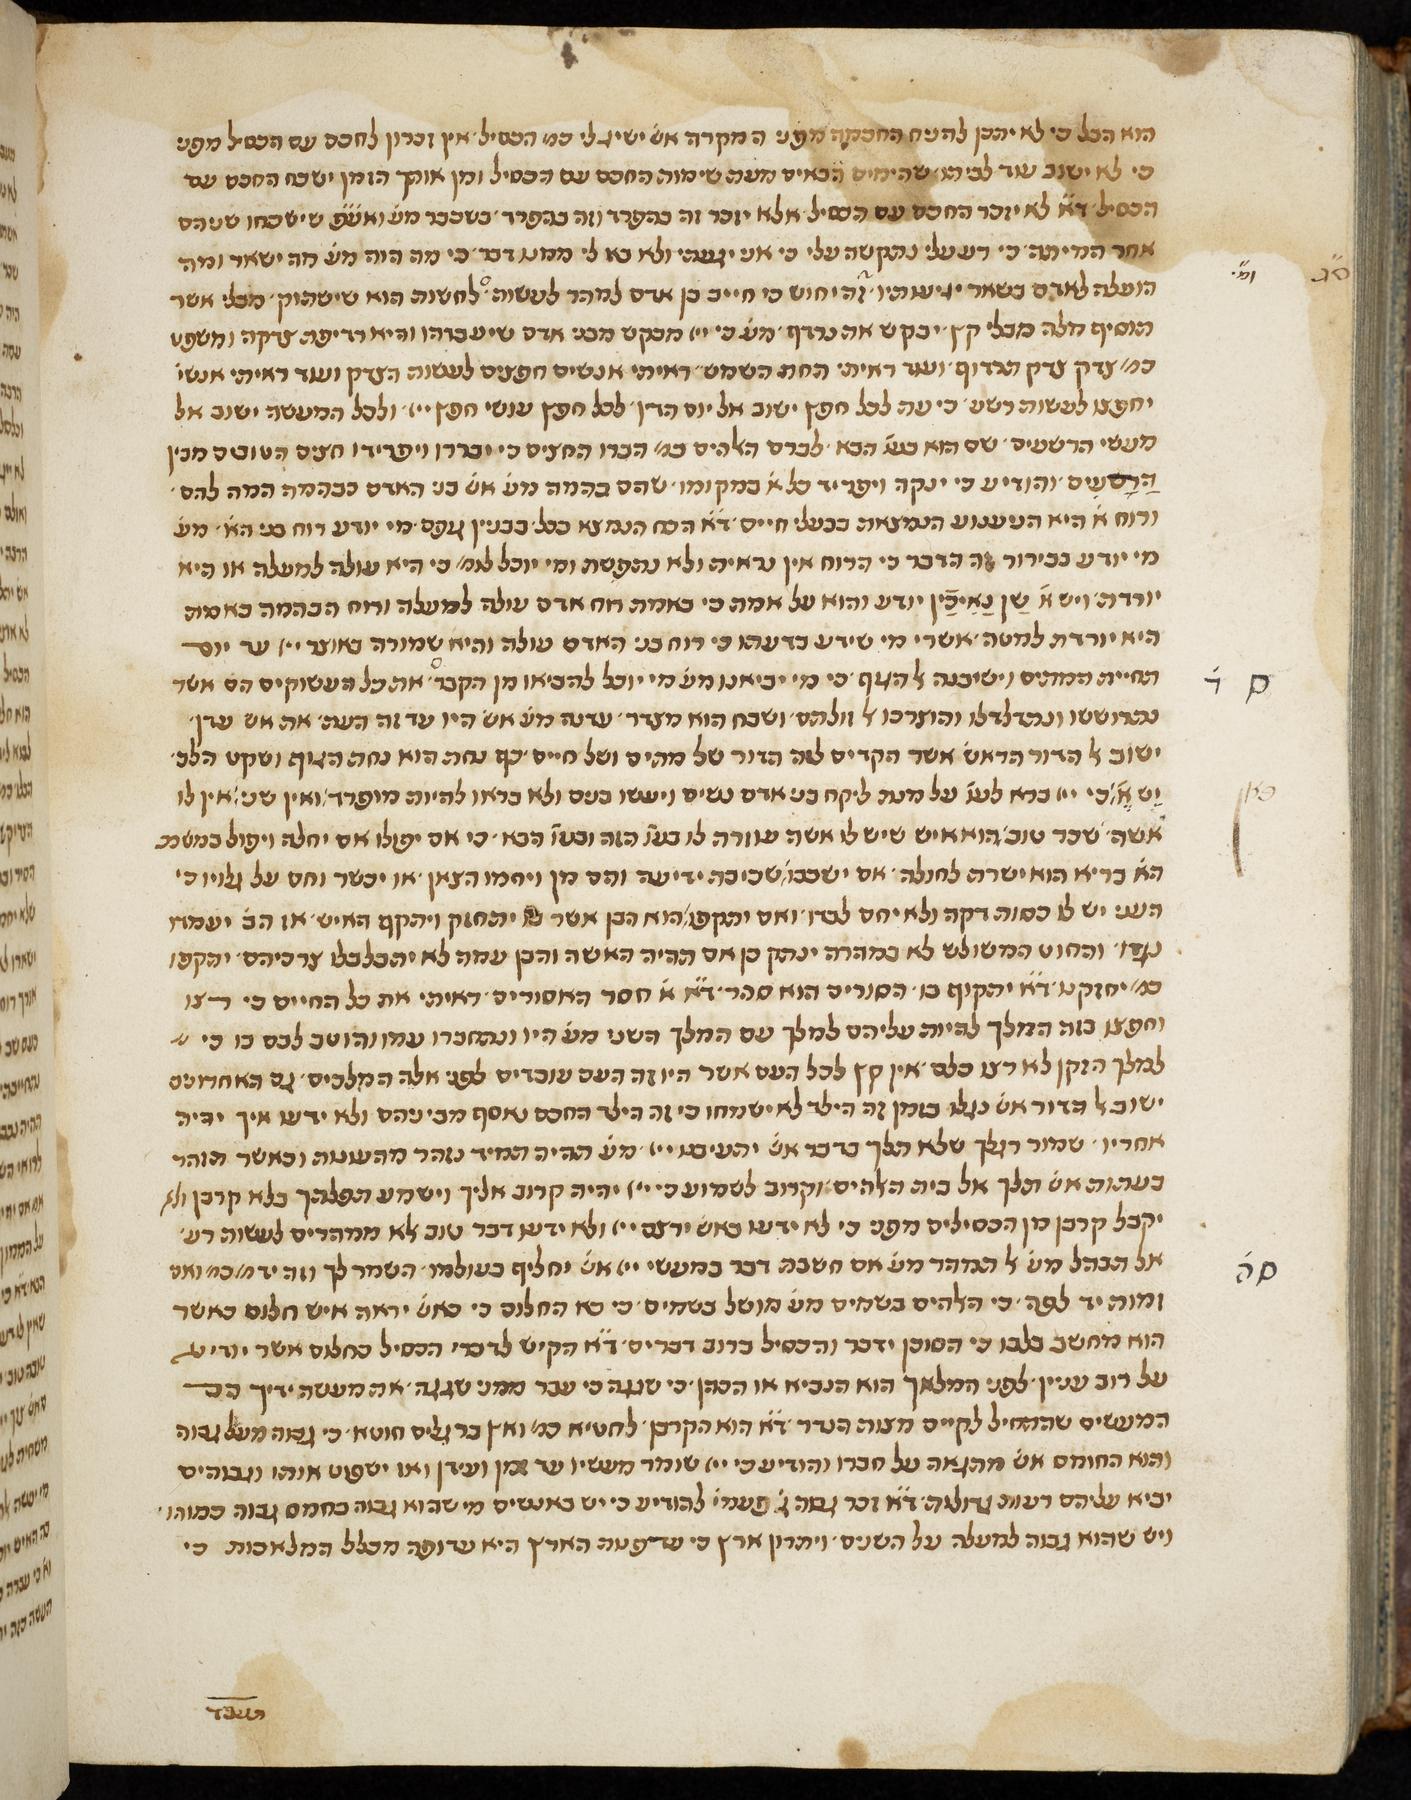 הוא הבל כי לא יתכן להניח החכמה מפני המקרה אש׳ ישיג לי כמ׳ הכסיל׳ אין זכרון לחכם עם הכסיל מפני
כי לא ישוב עוד לביתו׳ שהימים הבאים מעת שימות החכם עם הכסיל ומן אותך הזמן ישכח החכם עם
הכסיל׳ ד״א לא יזכר החכם עם הכסיל׳ אלא יזכר זה בהפרד וזה בהפרד׳ בשכבר מע׳ ואע״פ שישכחו שניהם
אחר המיתה׳ כי רע עלי נתקשה עלי כי אני יגעתי ולא בא לי ממנו דבר׳ כי מה הוה מע׳ מה ישאר ומה
הועלה לאדם בשאר יגיעותיו׳ זה יחוש כי חייב בן אדם למהר לעשות׳ לחשות הוא שישתוק׳ מבלי אשר
תוסיף מלה מבלי קץ׳ יבקש את נרדף׳ מע׳ כי ייי מבקש מבני אדם שיעברהו והיא רדיפת צדקה ומשפט
כמ׳ צדק צדק תרדוף׳ ועוד ראיתי תחת השמש׳ ראיתי אנשים חפצים לעשות הצדק ועוד ראיתי אנשי׳
יחפצו לעשות רשע׳ כי עת לכל חפץ ישוב אל יום הדין׳ לכל חפץ עושי חפץ ייי׳ ולכל המעשה ישוב אל
מעשי הרשעים׳ שם הוא בעו׳ הבא׳ לברם הלהים כמ׳ הברו החצים כי יבררו ויפרידו חצים הטובים מבין
הרשעים׳ והודיע כי ינקה ויפריד כל א׳ במקומו׳ שהם בהמה מע׳ אש׳ בני האדם כבהמה המה להם׳
ורוח א׳ היא הנענוע הנמצאת בבעלי חיים׳ ד״א הכח הנמצא בכל בבנין גופם׳ מי יודע רוח בני הא׳ מע׳
מי יודע בבירור זה הדבר כי הרוח אין נראית ולא נתפשת ומי יוכל לומ׳ כי היא עולה למעלה או היא
יורדת׳ ויש א׳ שן נאיכין יודע והוא על אמת כי באמת רוח אדם עולה למעלה ורוח הבהמה באמת
היא יורדת למטה׳ אשרי מי שידע בדעתו כי רוח בני האדם עולה והיא שמורה באוצר ייי עד יום
תחיית המתים וישיבנה ל הגוף׳ כי מי יביאנו מע׳ מי יוכל להביאו מן הקבר׳ את כל העשוקים הם אשר
נתרוששו ונתדלדלו והוצרכו ל זולתם׳ ושבח הוא מצדר׳ עדנה מע׳ אש׳ היו עד זה העת׳ את אש׳ עדן׳
ישוב ל הדור הראש׳ אשר הקדים לזה הדור של מתים ושל חיים׳ כף נחת הוא נחת הגוף ושקט הלב׳
יש א׳ כי ייי ברא לעו׳ על מנת ליקח בני אדם נשים ויעשו בנים ולא בראו להיות מופרד׳ ואין שני׳ אין לו
אשה׳ שכר טוב׳ הוא איש שיש לו אשה עוזרה לו בעו׳ הזה ובעו׳ הבא׳ כי אם יפולו אם יחלה ויפול במשכב
הא׳ בריא הוא ישרת לחולה׳ אם ישכבו׳ שכיבת ידיעה והם מן ויחמו הצאן׳ או יבשר וחם על גלויו כי
העני יש לו כסות דקה ולא יחם לבדו׳ ואם יתקפו׳ הוא הבן אשר יתחזק ויתקף האיש׳ אז הב׳ יעמדו
נגדו׳ והחוט המשולש לא במהרה ינתק כן אם תהיה האשה והבן עמה לא יתבלבלו צרכיהם׳ יתקפו
כמ׳ יחזקנו׳ ד״א יתקוף בו׳ הסורים הוא סהר׳ ד״א א׳ חסר האסורים׳ ראיתי את כל החיים כי רצו
וחפצו בזה המלך להיות עליהם למלך עם המלך השני מע׳ היו ונתחברו עמו והוטב לבם בו כי
למלך הזקן לא רצו כלם׳ אין קץ לכל העם אשר היו זה העם עובדים לפני אלה המלכים׳ גם האחרונים
ישוב ל הדור אש׳ נגלו בזמן זה הילד לא ישמחו כי זה הילד החכם נאסף מביניהם ולא ידעו איך יהיה
אחריו׳ שמור רגלך שלא תלך בדבר אש׳ יתעיבנו ייי׳ מע׳ תהיה תמיד נזהר מהעונות וכאשר תזהר
בעתות אש׳ תלך אל בית הלהים׳ וקרוב לשמוע כי ייי יהיה קרוב אליך וישמע תפלתך בלא קרבן ולא
יקבל קרבן מן הכסילים מפני כי לא ידעו כאש׳ ירצם ייי ולא ידעו דבר טוב לא ממהרים לעשות רע׳
אל תבהל מע׳ ל תמהר מע׳ אם חשבת דבר במעשי ייי אש׳ יחליף בעולמו׳ השמר לך וזה יד׳ כמ׳ ואם
זמות יד לפה׳ כי הלהים בשמים מע׳ מושל בשמים׳ כי בא החלום כי כאש׳ יראה איש חלום כאשר
הוא מחשב בלבו כי הסוכן ידבר והכסיל ברוב דברים׳ ד״א הקיש לדברי הכסיל כחלום אשר יודיע
על רוב ענין׳ לפני המלאך הוא הנביא או הכהן׳ כי שגגה כי עבר ממני שגגה׳ את מעשה ידיך הם
המעשים שהתחיל לקיים מצות הנדר׳ ד״א הוא הקרבן׳ לחטיא כמ׳ ואין ברגלים חוטא׳ כי גבוה מעל גבוה
והוא החומס אש׳ מתגאה על חברו והודיע כי ייי שומר מעשיו עד זמן ועידן ואז ישפוט אותו וגבוהים
יביא עליהם רעות גדולות׳ ד״א זכר גבוה ג׳ פעמי׳ להודיע כי יש באנשים מי שהוא גבוה כחמס גבוה כמוהו׳
ויש שהוא גבוה למעלה על השנים׳ ויתרון ארץ כי עד פעת הארץ היא עדופה מכלל המלאכות כי
תעבד